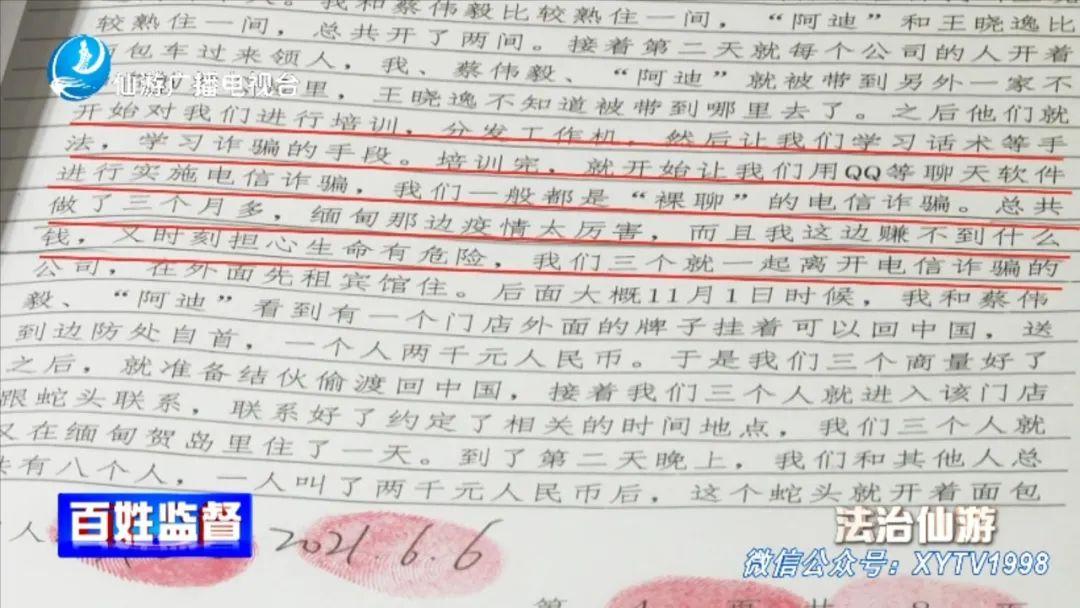 人。我和蔡伟毅比较熟住一间，“阿迪”和王晓逸比
较熟住一间，总共开了两间。接着第二天就每个公司的人开着
面包车过来领人，我、蔡伟毅、“阿迪”就被带到另外一家不
仙游广播电视台
里，王晓逸不知道被带到哪里去了。之后他们就
开始对我们进行培训，分发工作机，然后让我们学习话术等手
法，学习诈骗的手段。培训完，就开始让我们用QQ等聊天软件
进行实施电信诈骗，我们一般都是“裸聊”的电信诈骗。总共
做了三个月多，缅甸那边疫情太厉害，而且我这边赚不到什么
钱，又时刻担心生命有危险，我们三个就一起离开电信诈骗的
公司，在外面先租宾馆住。后面大概11月1日时候，我和蔡伟
毅、“阿迪”看到有一个门店外面的牌子挂着可以回中国，送
到边防处自首，一个人两千元人民币。于是我们三个商量好了
之后，就准备结伙偷渡回中国，接着我们三个人就进入该门店
跟蛇头联系，联系好了约定了相关的时间地点，我们三个人就
又在缅甸贺岛里住了一天。到了第二天晚上，我们和其他人总
共有八个人，一人叫了两千元人民币后，这个蛇头就开着面包
百姓监督
人
2021.6.6
法治仙游
微信公众号：XYTV1998
第 4 页 共 8